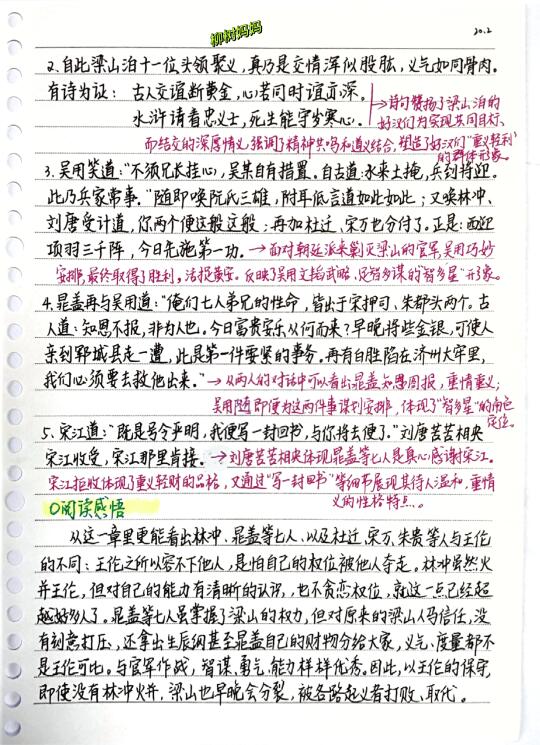 柳树妈妈
20.2
2.自此梁山泊十一位头领聚义，真乃是交情浑似股肱，义气如同骨肉。
有诗为证： 古人交谊断黄金，心若同时谊亦深。
水浒请看忠义士，死生能守岁寒心。
→诗句赞扬了梁山泊的
好汉们为实现共同目标，
而结交的深厚情义，强调了精神共鸣和道义结合，塑造了好汉们“重义轻利”
的群体形象。
3.吴用笑道：“不须兄长挂心，吴某自有措置。自古道：水来土掩，兵到将迎。
此乃兵家常事。”随即唤阮氏三雄，附耳低言道如此如此；又唤林冲、
刘唐受计道，你两个便这般这般；再加杜迁、宋万也分付了。正是：西迎
项羽三千阵，今日先施第一功。→面对朝廷派来剿灭梁山的官军，吴用巧妙
安排，最终取得了胜利，活捉黄安。反映了吴用文韬武略、足智多谋的“智多星”形象。
4.晁盖再与吴用道：“俺们七人弟兄的性命，皆出于宋押司、朱都头两个。古
人道：知恩不报，非为人也。今日富贵安乐从何而来？早晚将些金银，可使人
亲到郓城县走一遭，此是第一件要紧的事务。再有白胜陷在济州大牢里，
我们必须要去救他出来。”→从两人的对话中可以看出晁盖知恩图报，重情重义；
吴用随即便为这两件事谋划安排，体现了“智多星”的角色
定位。
5.宋江道：“既是号令严明，我便写一封回书，与你将去便了。”刘唐苦苦相央
宋江收受，宋江那里肯接。→刘唐苦苦相央体现晁盖等七人是真心感谢宋江。
宋江拒收体现了重义轻财的品格，又通过“写一封回书”等细节展现其待人温和，重情
义的性格特点…。
○阅读感悟
从这一章里更能看出林冲、晁盖等七人、以及杜迁、宋万、朱贵等人与王伦
的不同：王伦之所以容不下他人，是怕自己的权位被他人夺走。林冲虽然火
并王伦，但对自己的能力有清晰的认识，也不贪恋权位，就这一点已经超
越好多人了。晁盖等七人虽掌握了梁山的权力，但对原来的梁山人马信任，没
有刻意打压，还拿出生辰纲甚至晁盖自己的财物分给大家，义气、度量都不
是王伦可比。与官军作战，智谋、勇气、能力样样优秀。因此，以王伦的保守，
即使没有林冲火并，梁山也早晚会分裂，被各路起义者打败、取代。